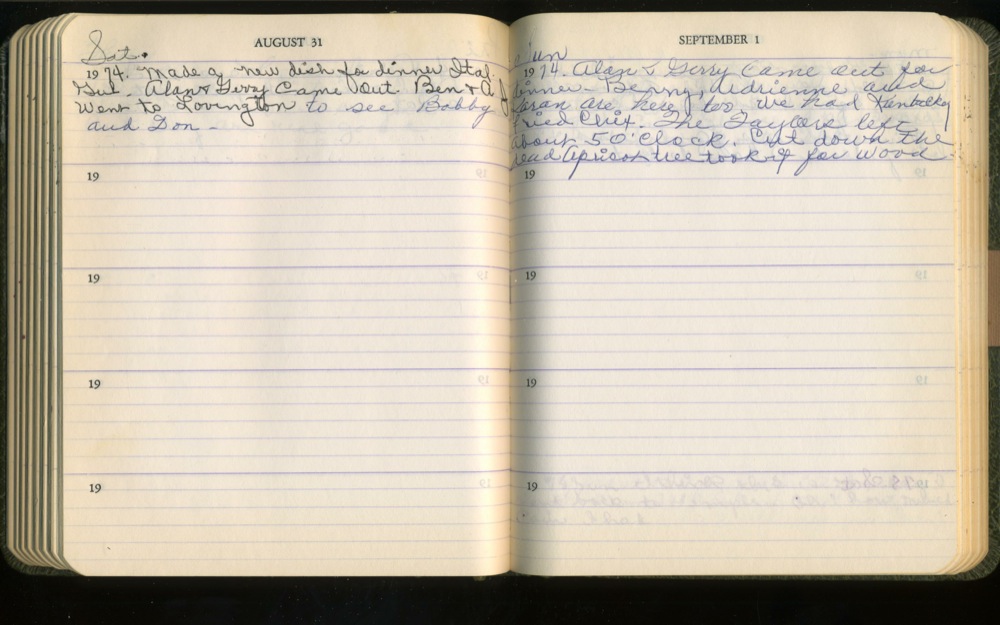 AUGUST 31
Sat.
1974. Made a new dish for dinner Ital.
Alan & Gerry Came Out. Ben & A
Went to Lovington to see Bobby
and Don -
19
19
19
19
SEPTEMBER 1
Sun
1974. Alan & Gerry Came out for
dinner - Benny, Adrienne and
Saran are here too. We had Kentucky
Fried Chix. The Taylors left
about 5 O'Clock. Cut down the
dead Apricot tree took it for wood.
19
19
19
19